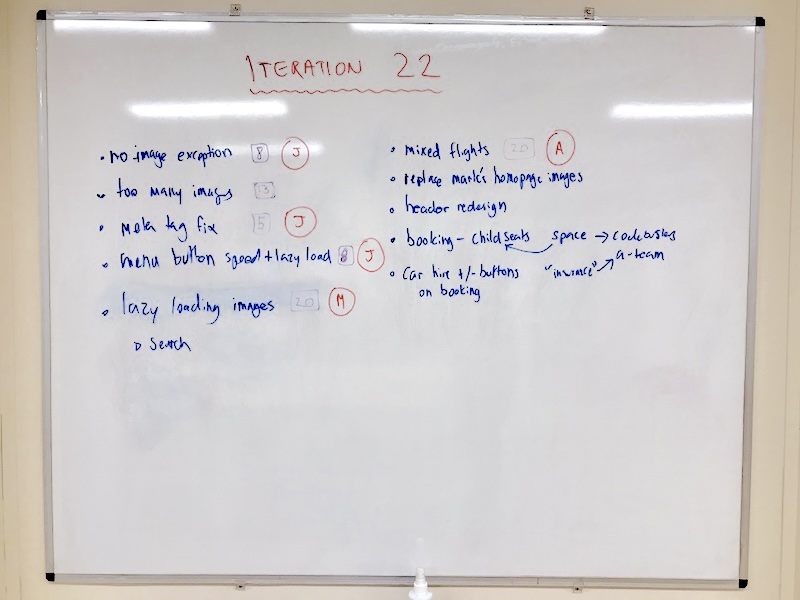 ITERATION 22
no image exception 8 J
too many images 13
Meta tag fix 5 J
menu button speed + lazy load 8 J
lazy loading images 20 M
search
mixed flights 20 A
replace mark's homepage images
header redesign
booking - child seats space → codebusters
"insurance" → a-team
car hire +/- buttons
on booking